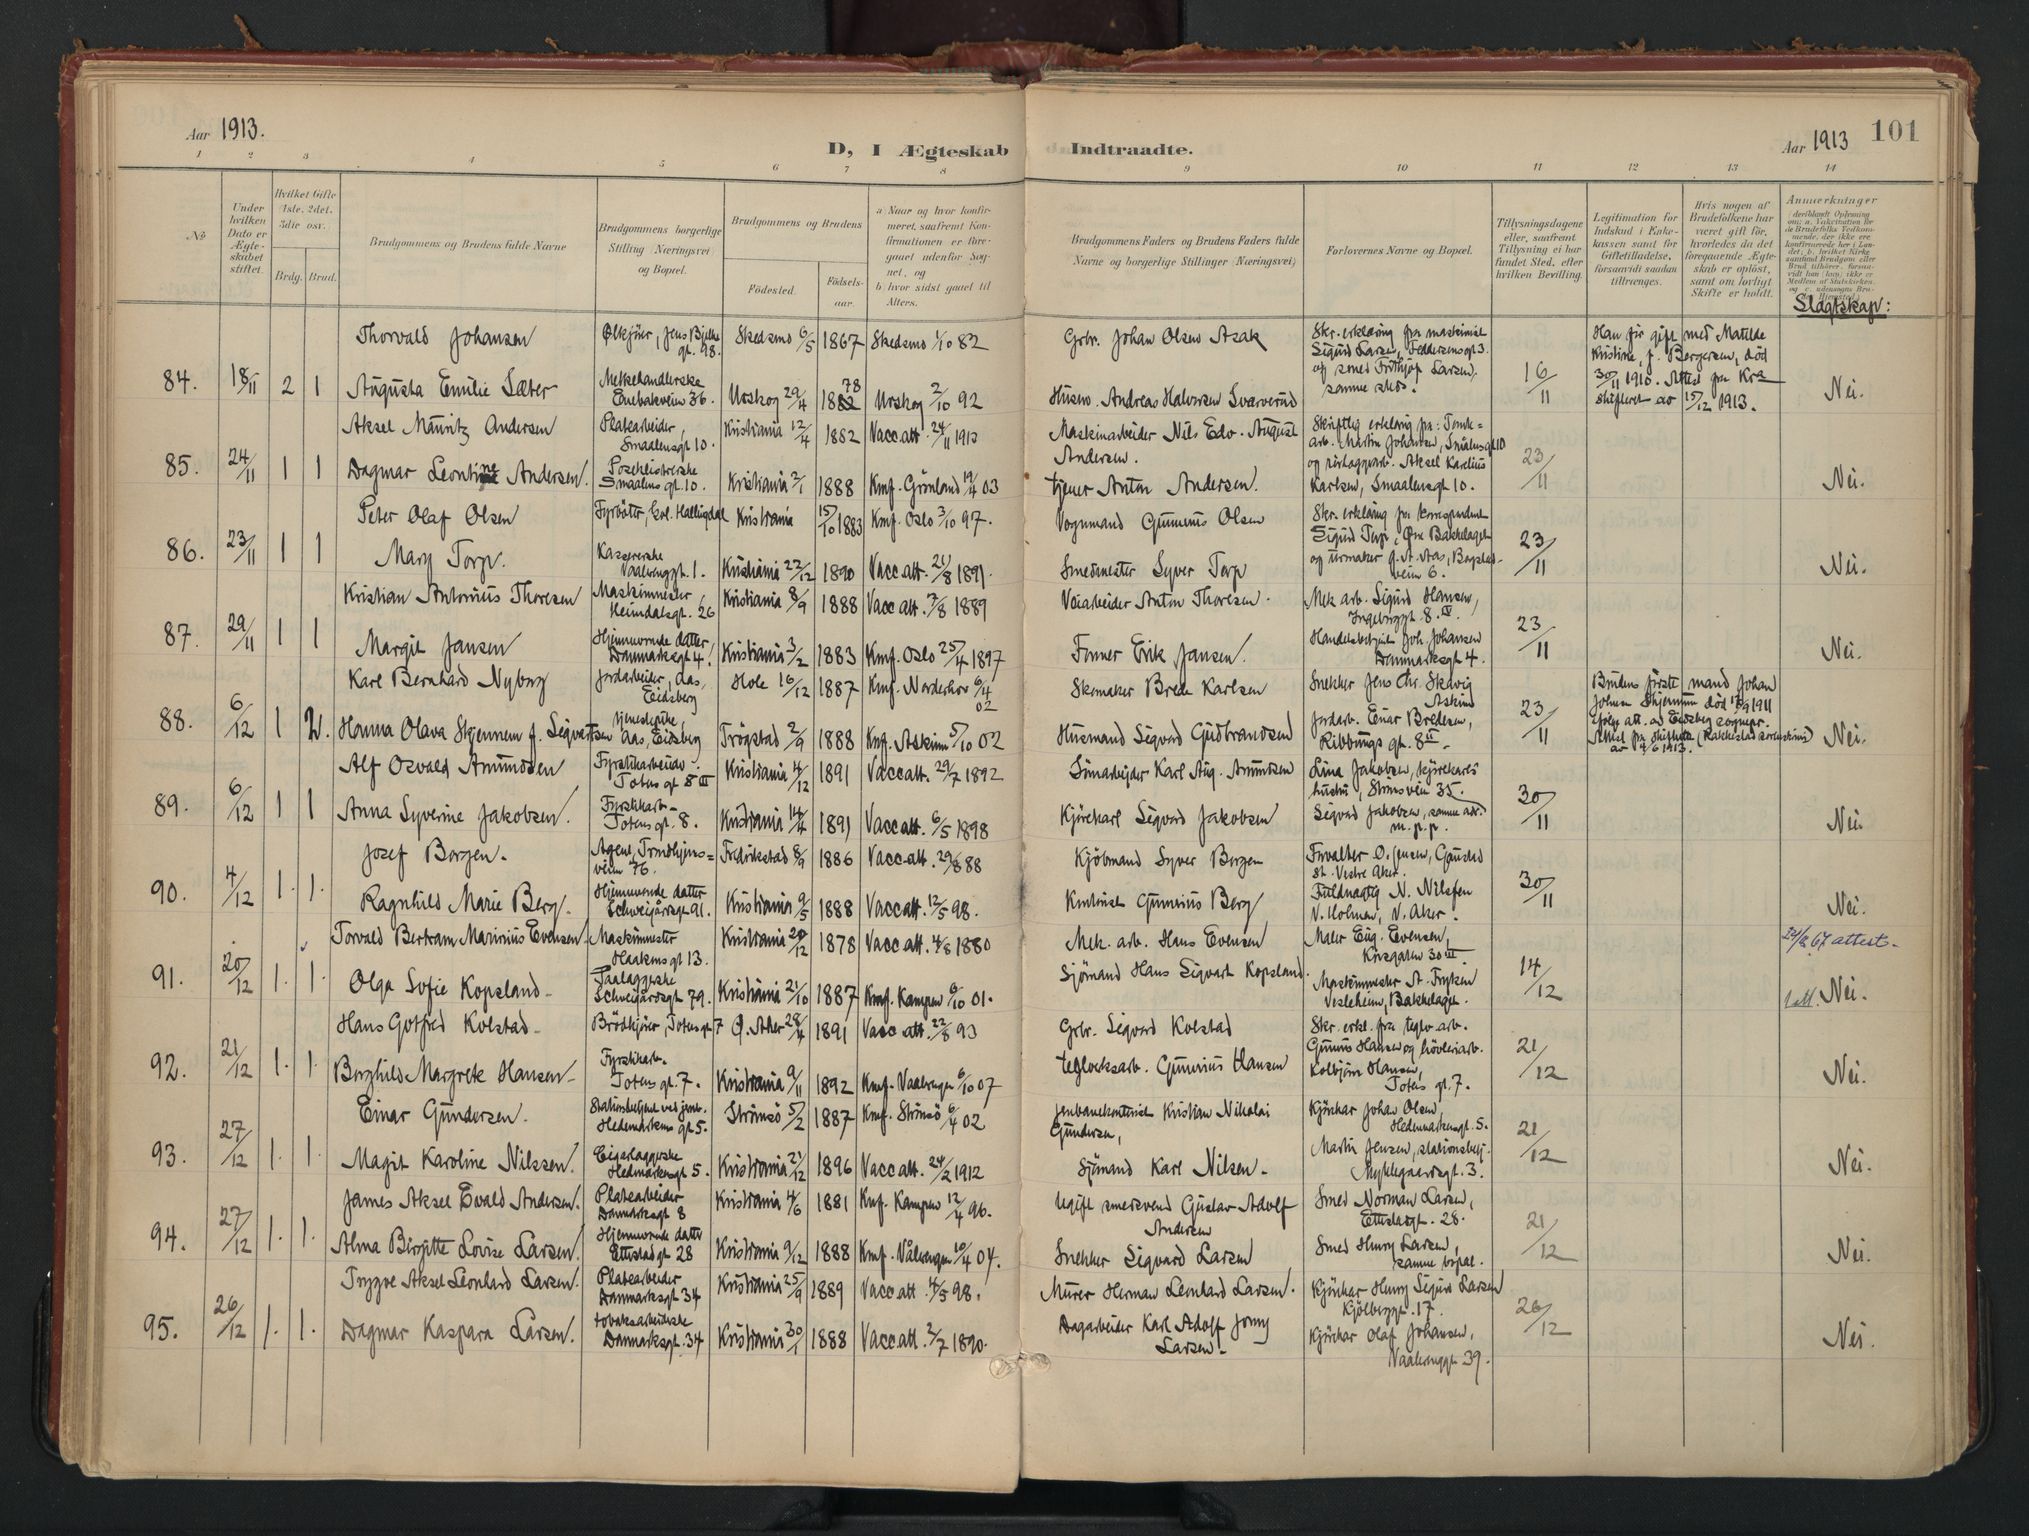 Aar 1913.
D, I Ægteskab Indtraadte.
Aar 1913
101
1 2 3 4 5 6 7 8 9 10 11 12 13 14
No
Under hvilken Dato er Ægteskabet stiftet.
Hvilket Gifte 1ste. 2det. 3die osv.
Brdg. Brud.
Brudgommens og Brudens fulde Navne
Brudgommens borgerlige Stilling (Næringsvei) og Bopæl.
Brudgommens og Brudens
Födested.
Födselsaar.
a) Naar og hvor konfirmeret, saafremt Konfirmationen er foregaaet udenfor Sognet, og
b) hvor sidst gaaet til Alters.
Brudgommens Faders og Brudens Faders fulde Navne og borgerlige Stillinger (Næringsvei)
Forlovernes Navne og Bopæl.
Tillysningsdagene eller, saafremt Tillysning ei har fundet Sted, efter hvilken Bevilling.
Legitimation for Indskud i Enkekassen samt for Giftetilladelse, forsaavidt saadan tiltrænges.
Hvis nogen af Brudefolkene har været gift før, hvorledes da det foregaaende Ægteskab er oplöst, samt om lovligt Skifte er holdt.
Anmerkninger
Slægtskap:
Thorvald Johansen
Ølkjører, Jens Bjelkes gt. 98.
Skedsmo 6/5 1867 Skedsmo 1/10 82
Grbr. Johan Olsen Asak
Skr. erklæring fra maskinist Sigurd Larsen, Feddersensgt 3. og smed Frithjof Larsen, samme sted.
Han før gift med Matilde Kristine, f. Bergersen, død 30/11 1910. Attest fra Kra skifteret av 15/12 1913.
84. 18/11 2 1 Augusta Emilie Sæter
Melkehandlerske Enebakveien 36.
Urskog 29/4 1878 Urskog 2/10 92
Husm. Andreas Halvorsen Svarverud
16/11
Nei.
Aksel Mauritz Andersen
Platearbeider, Smaalensgt 10.
Kristiania 12/4 1882 Vacc. att. 24/11 1913
Maskinarbeider Nils Edv. August Andersen.
85. 24/11 1 1 Dagmar Leontine Andersen.
Smaalens gt. 10.
Kristiania 2/1 1888 Knf. Grönland 19/4 03
tjener Anton Andersen.
Karlsen, Smaalensgt 10.
23/11
Nei.
Peter Olaf Olsen
Fyrböter, Hallingdal
Kristiania 15/10 1883 Knf. Oslo 3/10 97.
Vognmand Gunnerius Olsen
86. 23/11 1 1 Mary Torp.
Kassererske Vaalerenggt. 1.
Kristiania 22/12 1890 Vacc. att. 21/8 1891.
Smedmester Syver Torp
23/11
Nei.
Kristian Antonius Thoresen
Maskinmester, Heimdalsgt. 26
Kristiania 8/9 1888 Vacc att. 7/8 1889
Veiarbeider Anton Thoresen.
Mek arb. Sigurd Hansen, Ingeborggt. 8. IV.
87. 29/11 1 1 Margit Jansen
Hjemmevrende datter, Danmarksgt 4.
Kristiania 3/2 1883 Knf. Oslo 25/4 1897
Former Erik Jansen.
Joh. Johansen Danmarksgt 4.
23/11
Nei.
Karl Bernhard Nyborg
Jordarbeider, Aas, Eidsberg
Hole 16/12 1887 Knf. Norderhov 6/4 02
Skomaker Brede Karlsen
Snekker Jens Chr. Skavig Askim
Brudens første mand Johan
88. 6/12 1 2. Hanna Olava Skjennem f. Sigvartsen
tjenestepike, Aas, Eidsberg
Trögstad 2/9 1888 Knf. Askim 5/10 02
Husmand Sigvard Gudbrandsen
Jordarb. Einar Bredesen, Ribbungs gt. 8 II
23/11
Nei.
Alf Osvald Amundsen
Fyrstikarbeider. Totens gt 8 III
Kristiania 4/12 1891 Vacc att. 29/7 1892
Karl Aug. Amundsen
Lina Jakobsen, kjørekarls hustru, Strömsvein 35.
89. 6/12 1 1 Anna Syverine Jakobsen.
Fyrstikarb. Totens gt. 8.
Kristiania 14/4 1891 Vacc att. 6/5 1898
Kjörekarl Sigvard Jakobsen
Sigvard Jakobsen, samme adr.
30/11
Nei.
Josef Borgen.
Agent, Trondhjemsveien 76.
Fredrikstad 8/9 1886 Vacc. att. 29/8 88
Kjöbmand Syver Borgen
Forvalter O. Jensen, Gaustad St. Vestre Aker.
90. 4/12 1. 1. Ragnhild Marie Berg.
Hjemmevrende datter Schweigårdsgt 91.
Kristiania 9/5 1888 Vacc att. 12/5 98.
Kontorist Gunerius Berg
Fuldmægtig N. Nilssen V. Holmen, V. Aker.
30/11
Nei.
Torvald Bertram Marinius Evensen
Maskinmester Haakons gt 13.
Kristiania 20/12 1878 Vacc att. 4/8 1880
Mek. arb. Hans Evensen
Maler Eug. Evensen,
24/8 67 attest.
91. 20/12 1. 1. Olga Sofie Kopsland
Schweigårdsgt 79.
Kristiania 21/10 1887 Knf. Kampen 6/10 01.
Sjömand Hans Sigvart Kopsland.
Maskinmester A. Vesleheim, Bækkelaget.
14/12
1 att. Nei.
Hans Gotfred Kolstad
Brödkjörer, Totens gt 7
Ø. Aker 28/4 1891 Vacc att. 22/8 93
Grbr. Sigvard Kolstad
Skr. erkl. fra teglv. arb. Gunerius Hansen og
92. 21/12 1. 1. Borghild Margrete Hansen
Fyrstikarb. Totens gt. 7.
Kristiania 9/11 1892 Knf. Vaalerengen 6/10 07
teglverksarb. Gunerius Hansen
Kolbjörn Hansen, Totens gt. 7.
21/12
Nei.
Einar Gundersen.
Stationsbetjent ved jernb. Hedemarkens gt 5.
Strömsö 5/2 1887 Knf. Strömsö 6/4 02
Jernbanekontorist Kristian Nikolai Gundersen,
Kjörekar Johan Olsen, Hedemarkensgt. 5.
93. 27/12 1. 1. Magit Karoline Nilssen.
Hedmarkensgt 5.
Kristiania 21/12 1896 Vacc att. 24/2 1912
Sjömand Karl Nilsen
Martin Jensen, stationsbetj.
21/12
Nei.
James Aksel Evald Andersen.
Platearbeider Danmarksgt 8
Kristiania 4/6 1881 Knf. Kampen 12/4 96.
Ugift smedsvend Gustav Adolf Andersen
Smed Norman Larsen, Etterstadgt. 28.
94. 27/12 1. 1. Alma Birgitte Lovise Larsen.
Hjemmevrende datter Etterstadgt 28
Kristiania 9/12 1888 Knf. Vålerengen 10/4 04.
Snekker Sigvard Larsen
Smed Henry Larsen, samme bopæl.
21/12
Nei.
Trygve Aksel Leonhard Larsen.
Platearbeider Danmarksgt 34
Kristiania 25/9 1889 Vacc. att. 4/5 98.
Murer Herman Leonhard Larsen.
Kjörekar Henry Sigurd Larsen Kjölberggt. 17.
95. 26/12 1. 1. Dagmar Kaspara Larsen.
tobaksarbeiderske Danmarksgt. 34
Kristiania 30/1 1888 Vacc. att. 2/7 1890.
Dagarbeider Karl Adolf Jonny Larsen
Kjörekar Olaf Johansen, Vaalerenggt 39.
26/12
Nei.